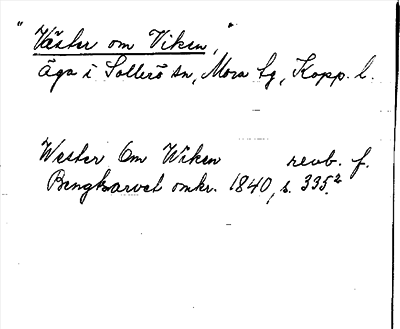 "Väster om Viken,
äga i Sollerö sn, Mora tg, Kopp. l.
Wester Om Wiken revb. f.
Bengtsarvet omkr. 1840, s. 335.²